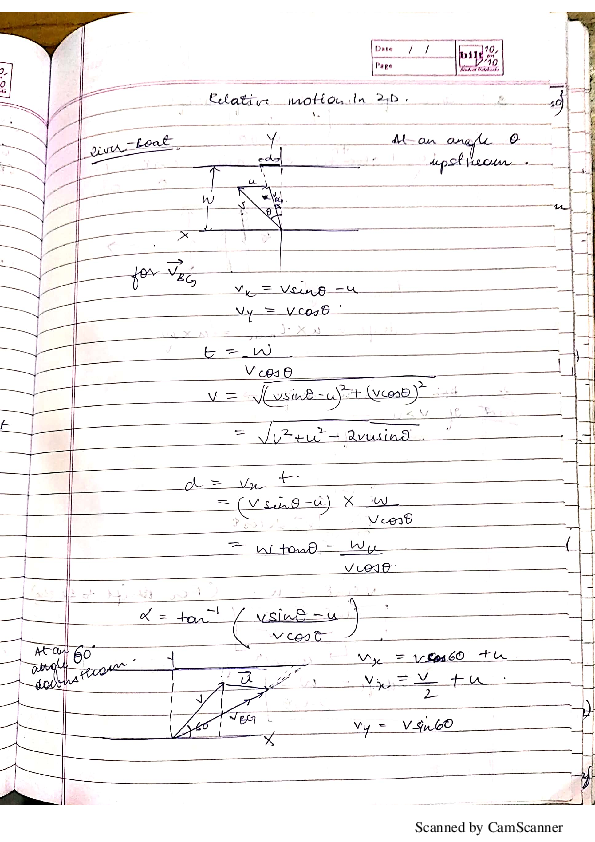 Date / /
Page
Relative motion In 2D.
River-boat
At an angle θ
upstream.
Y
d
u
W
v
θ
X
for V⃗BG
vx = vsinθ - u
vy = vcosθ
t = w / vcosθ
v = √(vsinθ-u)² + (vcosθ)²
= √v² + u² - 2vusinθ
d = vx t
= (v sinθ - u) × w / vcosθ
= w tanθ - wu / vcosθ
α = tan⁻¹ (vsinθ - u / vcosθ)
At an
angle 60°
downstream.
Y
u⃗
v
VBG
60
X
vx = vcos60 + u
vx = v/2 + u
vy = vsin60
Scanned by CamScanner